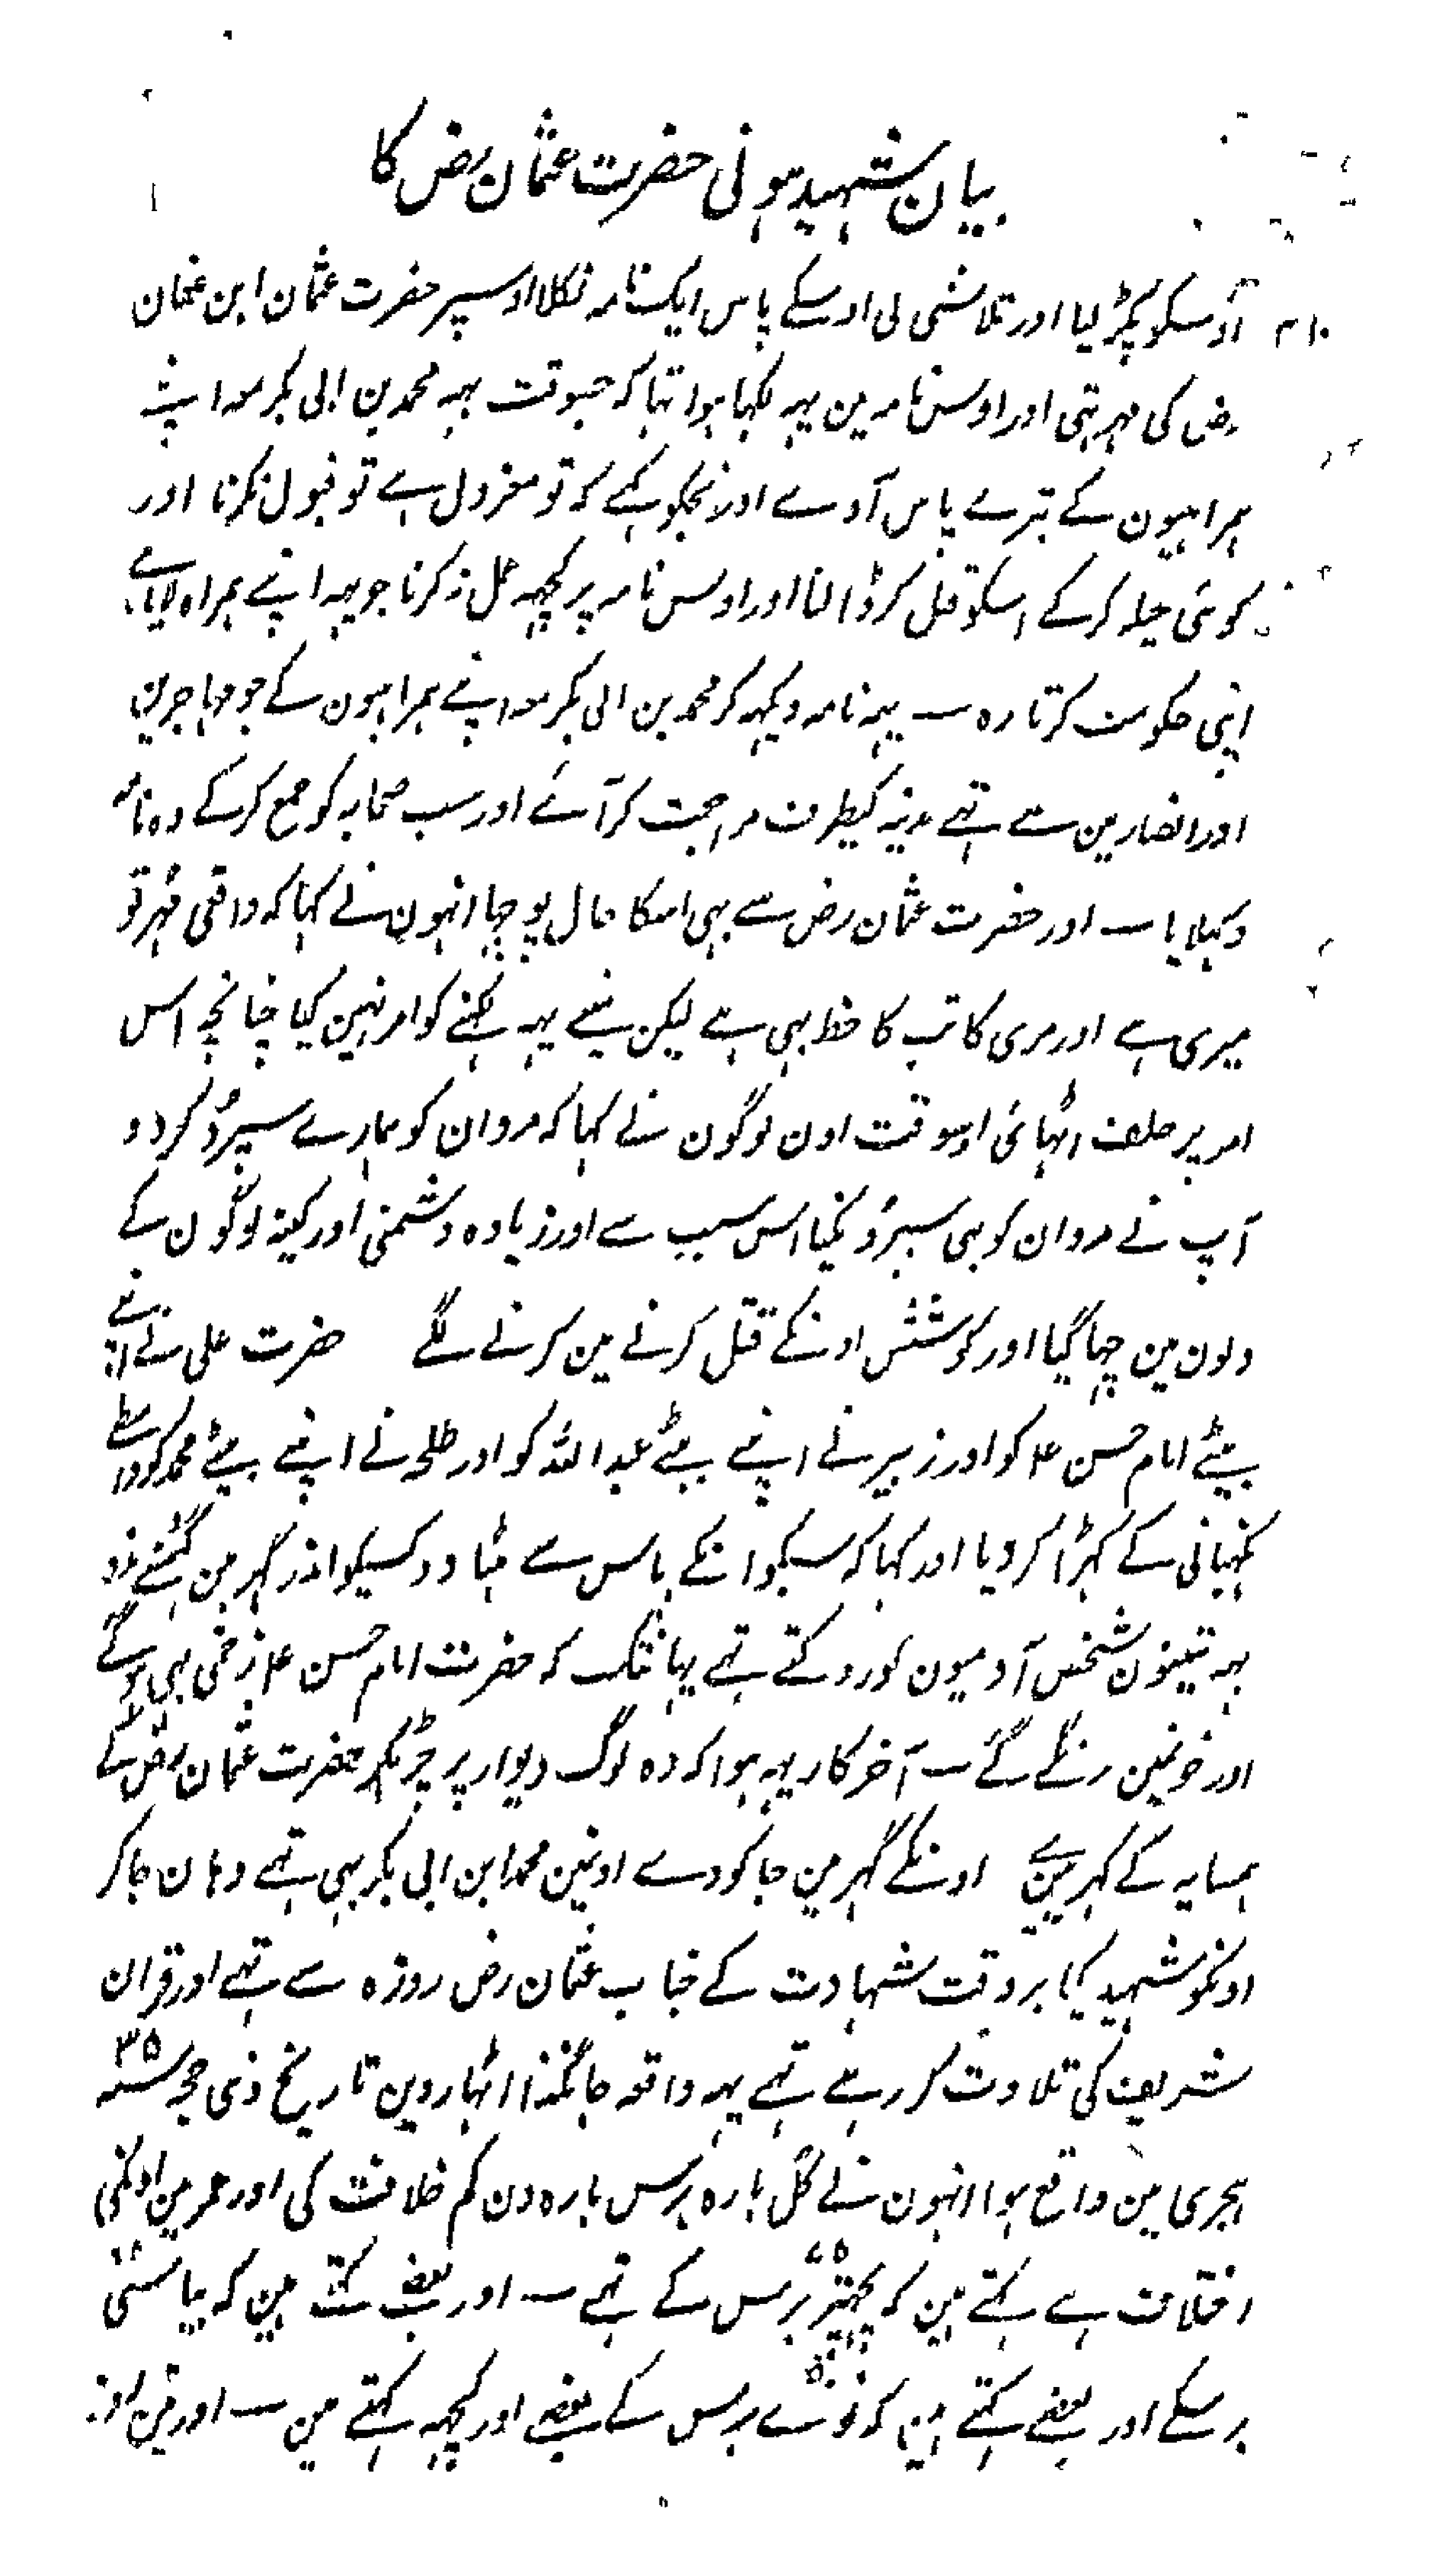 بیان شہید ہونی حضرت عثمان رض کا
اُوسکو پکڑ لیا اور تلاشی لی اوسکے پاس ایک نامہ نکلا اوسپر حضرت عثمان ابن عفان
رض کی مہر تہی اور اوس نامہ مین یہہ لکہا ہوا تہا کہ جسوقت یہہ محمد بن ابی بکر معہ اپنے
ہمراہیون کے تیرے پاس آوے اور تجکو کہے کہ تو معزول ہے تو قبول نکرنا اور
کوئی حیلہ کرکے اسکو قتل کر ڈالنا اور اوس نامہ پر کچہہ عمل نہ کرنا جو یہہ اپنے ہمراہ لایا ہے
اپنی حکومت کرتا رہ ۔ یہہ نامہ دیکہہ کر محمد بن ابی بکر معہ اپنے ہمراہیون کے جو مہاجرین
اور انصارین سے تہے مدینہ کیطرف مراجعت کر آئے اور سب صحابہ کو جمع کرکے وہ نامہ
دکہلایا ۔ اور حضرت عثمان رض سے بہی اسکا حال پوچہا انہون نے کہا کہ واقعی مُہر تو
میری ہے اور مری کاتب کا خط بہی ہے لیکن مینے یہہ لکہنے کو امر نہین کیا چنانچہ اس
امر پر حلف اُٹہائی اوسوقت اون لوگون نے کہا کہ مروان کو ہمارے سپرد کردو
آپ نے مروان کو بہی سپرد نکیا اس سبب سے اور زیادہ دشمنی اور کینہ لوگون کے
دلون مین چہا گیا اور کوشش اونکے قتل کرنے مین کرنے لگے حضرت علی نے اپنے
بیٹے امام حسن ع کو اور زبیر نے اپنے بیٹے عبد اللہ کو اور طلحہ نے اپنے بیٹے محمد کو واسطے
نگہبانی کے کہڑا کر دیا اور کہا کہ سبکو انکے پاس سے ہٹا دو کسیکو اندر گہر مین گہسنے ندو
یہہ تینون شخص آدمیون کو روکتے تہے یہانتک کہ حضرت امام حسن ع زخمی بہی ہوگے
اور خونمین رنگے گئے ۔ آخر کار یہہ ہوا کہ وہ لوگ دیوار پر چڑہکر حضرت عثمان رض کے
ہمسایہ کے گہر مین سے اونکے گہر مین جا کودے اونمین محمد ابن ابی بکر بہی تہے وہان جاکر
اونکو شہید کیا بر وقت شہادت کے جناب عثمان رض روزہ سے تہے اور قران
شریف کی تلاوت کر رہے تہے یہہ واقعہ جانگزا اٹہاروین تاریخ ذی حجہ سنہ ۳۵
ہجری مین واقع ہوا انہون نے کل بارہ برس بارہ دن کم خلافت کی اور عمر مین اونکی
اختلاف ہے کہتے ہین کہ پچہتر ۷۵ برس کے تہے ۔ اور بعضے کہتے ہین کہ بیاسی
برسکے اور بعضے کہتے ہین کہ نوّے برس کے بعضے اور کچہہ کہتے ہین ۔ اور